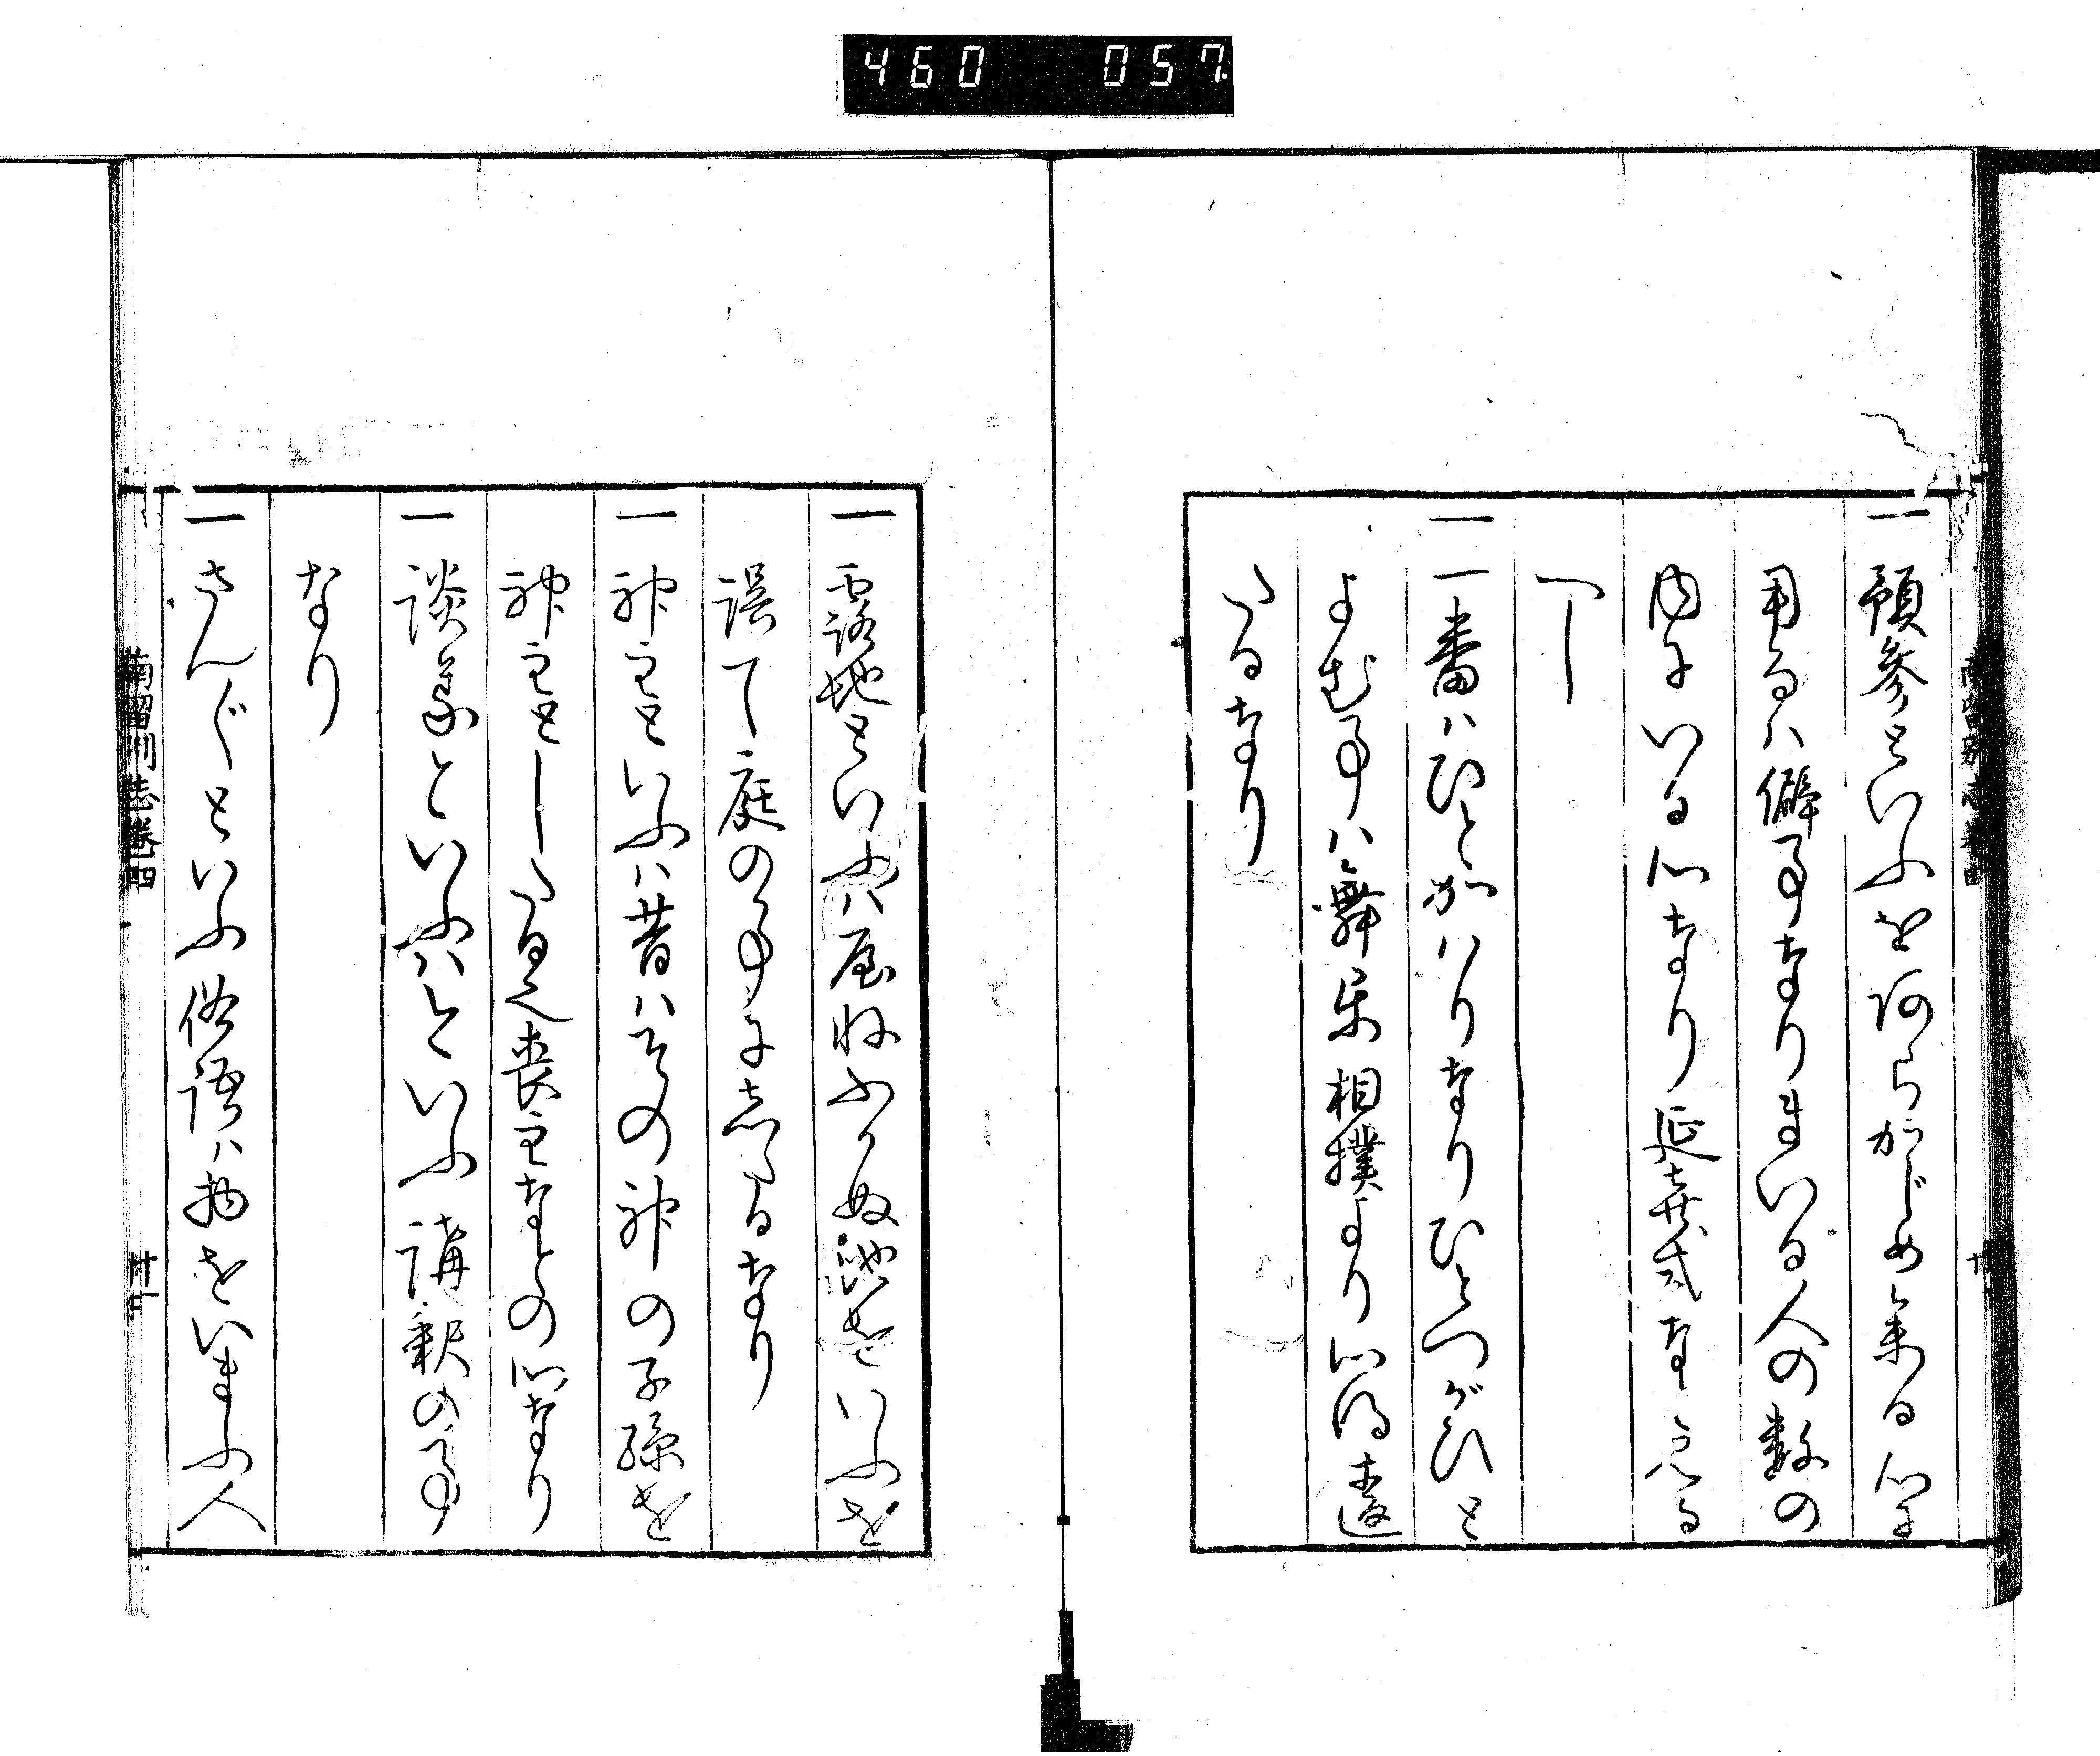 460 057
一預参といふをあらかじめ参る心に
用るハ僻事なりまいる人の数の
内にいる心なり延喜式など見る
べし
一一番ハひとかハりなりひとつがひと
よむ事ハ舞楽相撲より心得違
たるなり
一露地といふハ屋ねふかぬ地をいふを
誤て庭の事に志たるなり
一神主といふハ昔ハその神の子孫を
神主としたる也喪主などの心なり
一談義といふハ今いふ講釈の事
なり
一さんぐといふ俗語ハ物をいまふ人
南留別志巻四
廿一